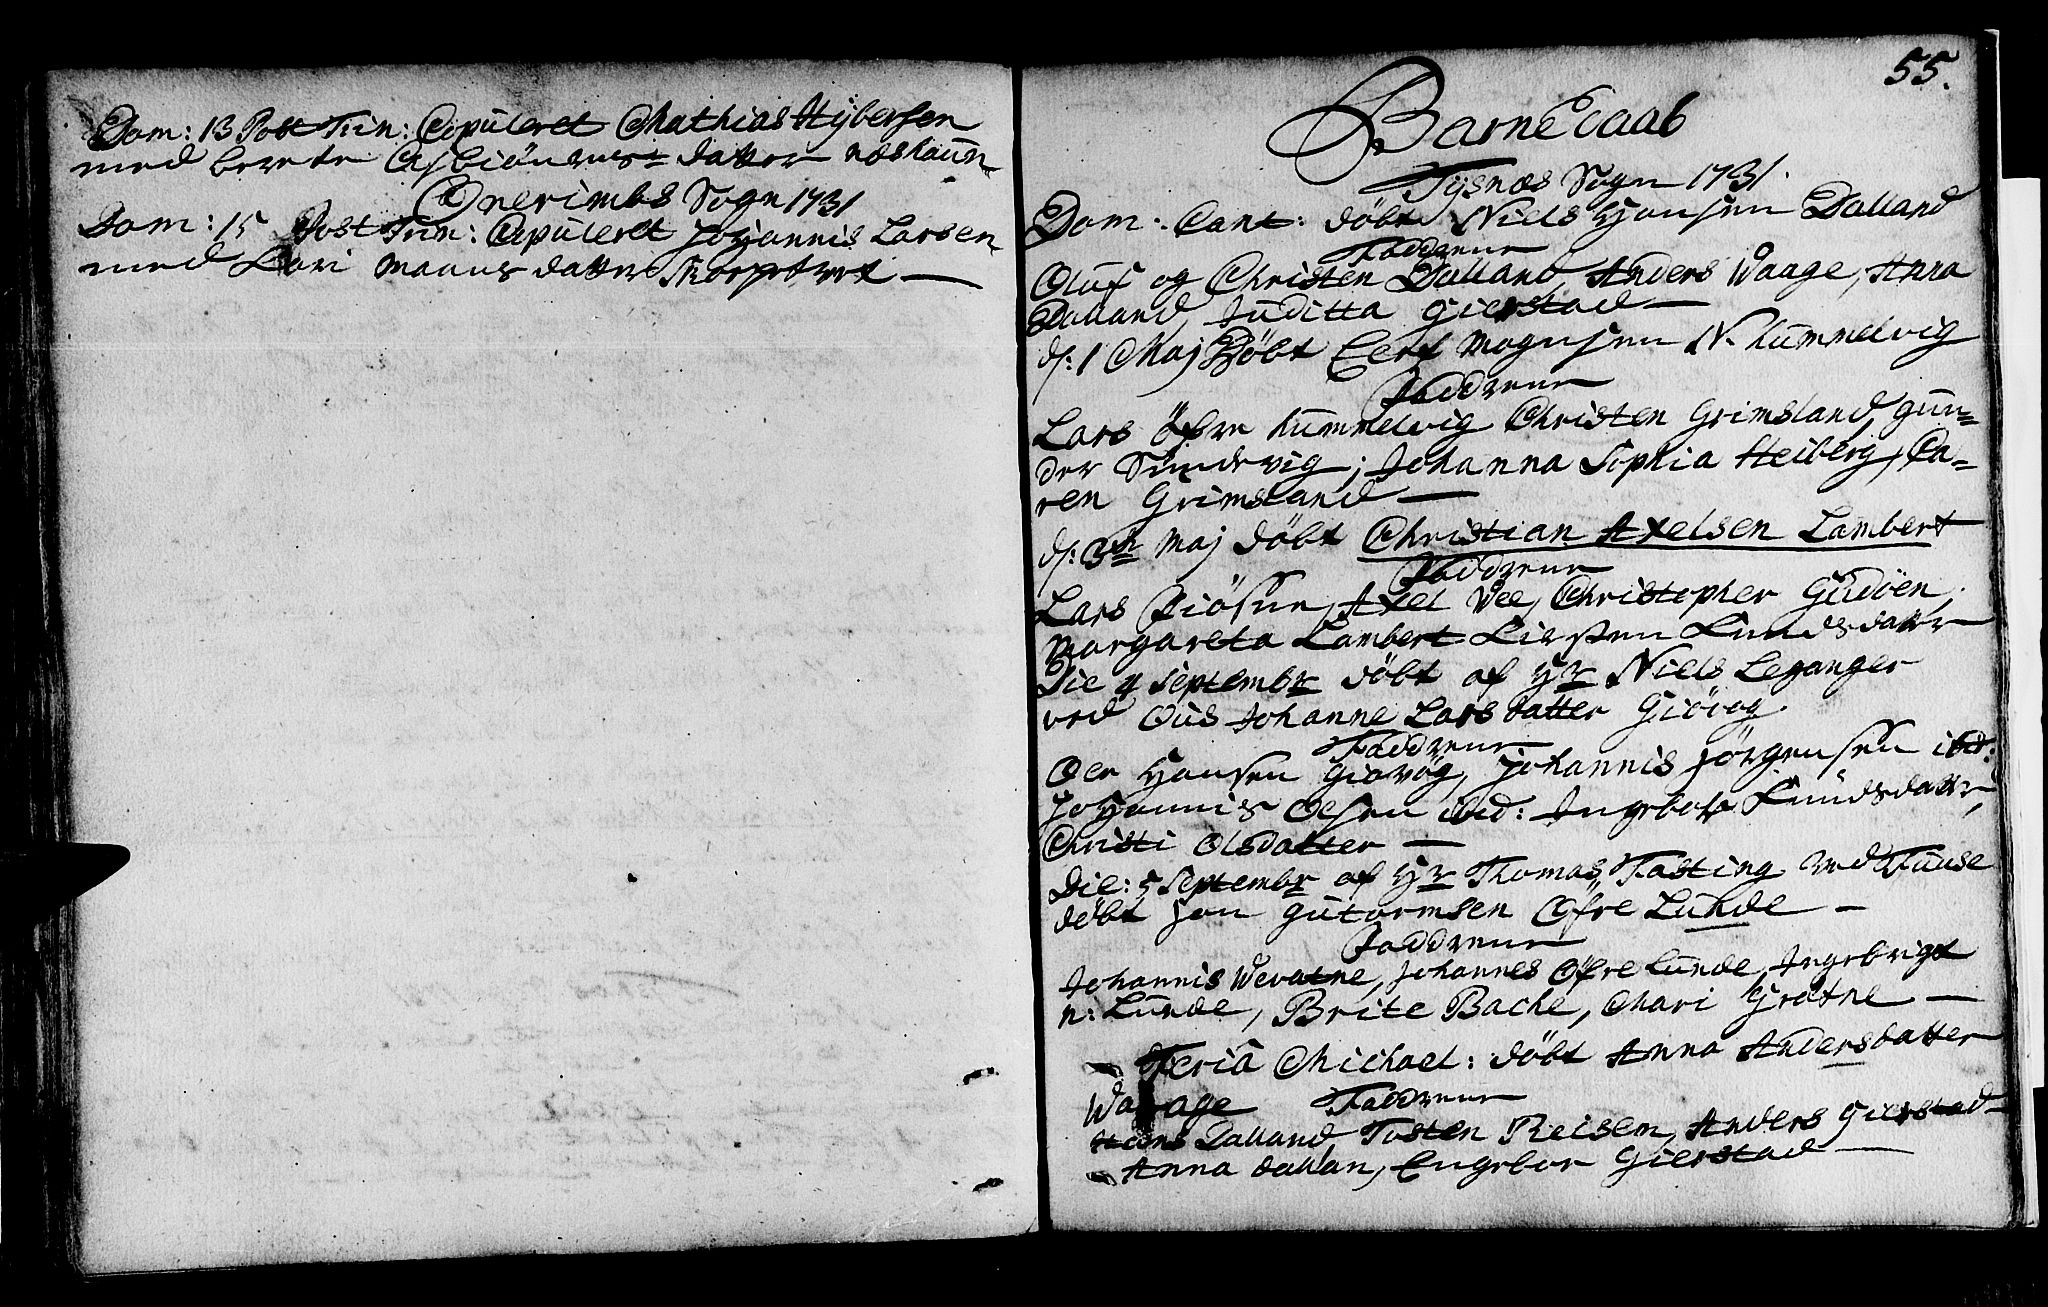 Dom: 13 Post Trin: Copuleret Mathias Hybersen
med berete Asbiöns datter
Onerimbs Sogn 1731
Dom: 15 Post Trin: Copuleret Johannis Larsen
med Kari Maans datter Skorpetvet —
55.
Barne Daab
Tysnæs Sogn 1731.
Dom: Cant: döbt Niels Hansen Dalland
Faddrene
Oluf og Christen Dalland, Anders Waage, Anna
Dalland, Juditta Gierstad —
d: 1 Maj Döbt Eert Magnsen N. Hummelvig
Faddrene
Lars öfre Hummelvig Christen Grimsland, gun-
der Sundevig; Johanna Sophia Heiberg, Ca-
ren Grimsland —
d: 3n Maj döbt Christian Axelsen Lambert
Faddrene
Lars Axel Vee, Christopher Gudöen,
Margareta Lambert Kirsten Knudsdatter
Die 4 Septembr döbt af Hr Niels Leganger
ved Ous Johanne Larsdatter Giövog
Faddrene
Ole Hansen Giövog, Johannis Jörgensen ibd:
Johannis Olsen ibid: Ingebor Knudsdatter,
Christi Olsdatter —
Die: 5 Septembr af Hr Thomas Fasting ved Uuse
döbt Jon Gutormsen Öfre Lunde —
Faddrene
Johannis Wevatne, Johannes Öfre Lunde, Ingebrigt
n: Lunde, Brite Bache, Mari Grotne —
Feria Michael: döbt Anna Andersdatter
Waage Faddrene
Hans Dalland Tosten Reisen, Anders Gierstad
Anna Dallan, Engebor Gierstad —